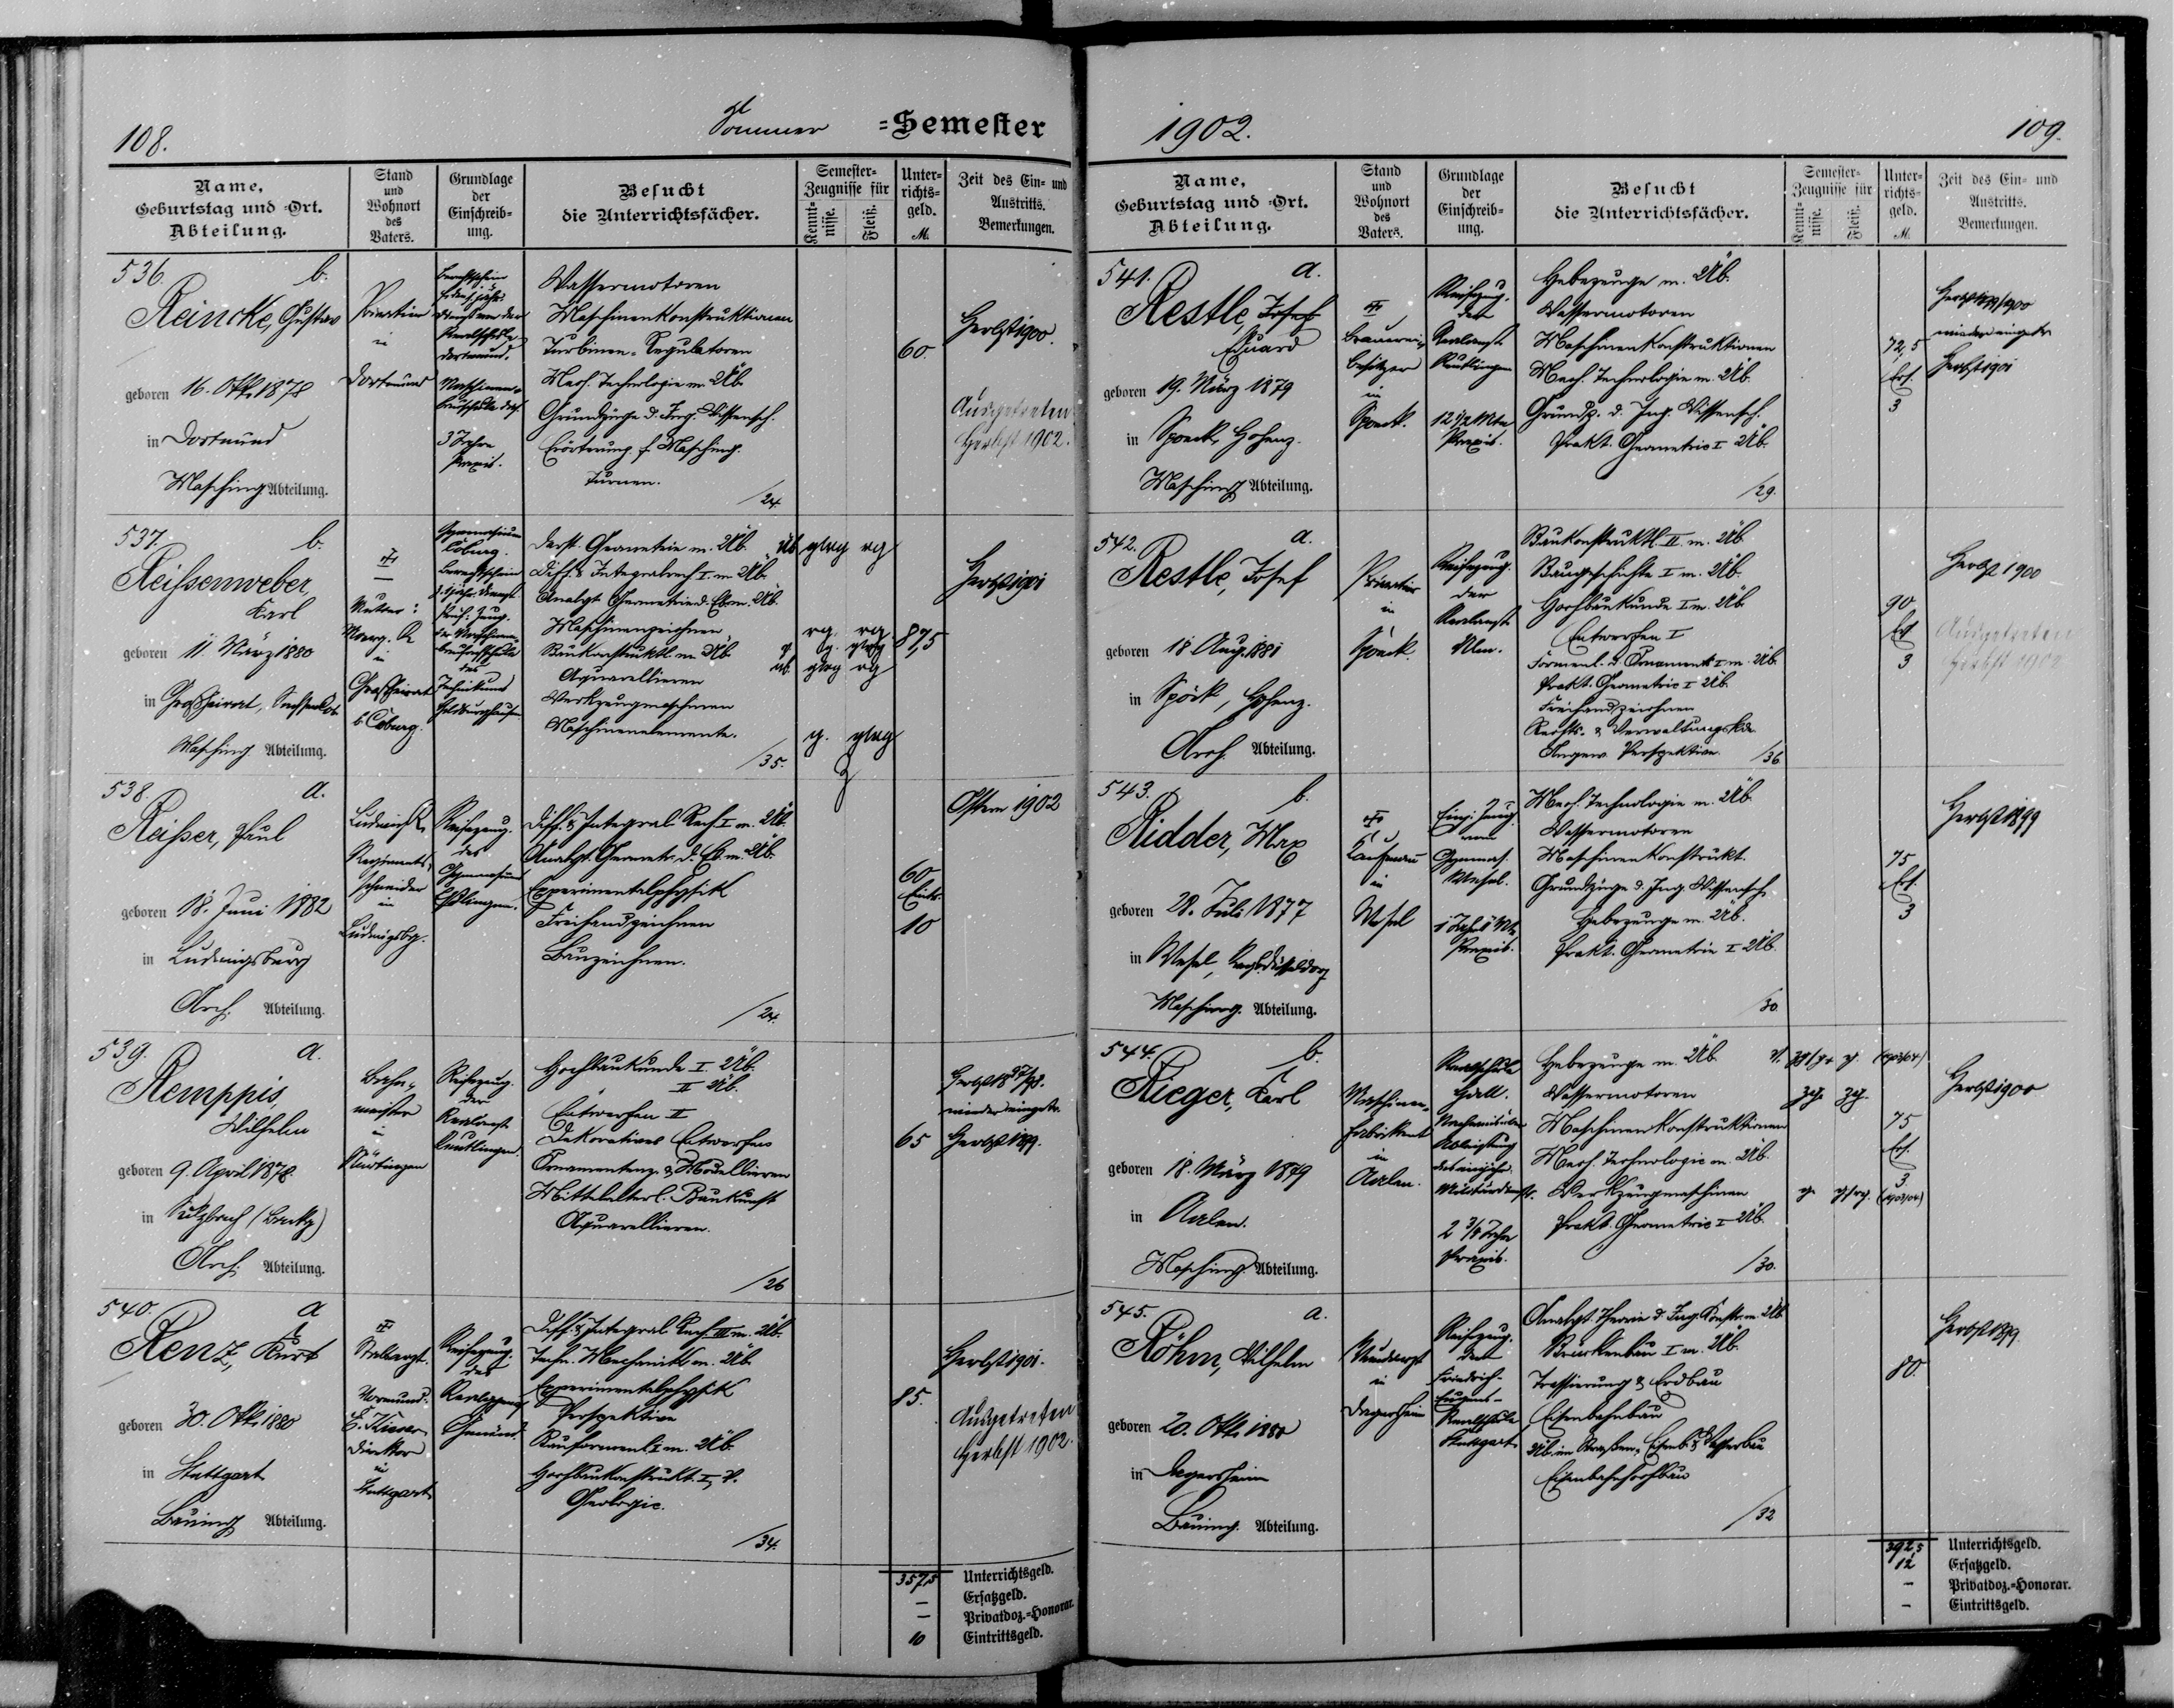 108.
Sommer =Semester
Name,
Geburtstag und =Ort.
Abteilung.
Stand
und
Wohnort
des
Vaters.
Grundlage
der
Einschreib=
ung.
Besucht
die Unterrichtsfächer.
Semester=
Zeugnisse für
Kennt=
nisse.
Fleiß.
Unter=
richts=
geld.
M.
Zeit des Ein= und
Austritts.
Bemerkungen.
536. b.
Reincke, Gustav
geboren 16. Okt. 1878
in Dortmund
Masching. Abteilung.
Privatier
in
Dortmund
Realschule
Dortmund.
3 Jahre
Praxis.
Wassermotoren
Maschinenkonstruktionen
Turbinen-Regulatoren
Mech. Technologie m. Üb.
Grundzüge d. Ing. Wissensch.
Turnen.
/24.
60.
Herbst 1900.
Ausgetreten
Herbst 1902.
537. b.
Reissenweber,
Karl
geboren 11. März 1880
in Großheirat,
Masching. Abteilung.
Mutter:
in
Großheirat
b. Coburg.
Gymnasium
Coburg.
Technikums
Hildburghausen
Darst. Geometrie m. Üb.
Diff. & Integralrech. I m. Üb.
Analyt. Geometrie d. Ebene m. Üb.
Maschinenzeichnen
Baukonstruktl. m. Üb.
Aquarellieren
Werkzeugmaschinen
Maschinenelemente.
/35.
87,5
Herbst 1901
538. a.
Reisser, Paul
geboren 18. Juni 1882
in Ludwigsburg
Arch. Abteilung.
Regiments-
schneider
in
Ludwigsbg.
Reifezeug.
des
Gymnasiums
Esslingen.
Diff. & Integral Rech. I m. Üb.
Analyt. Geometr. d. Eb. m. Üb.
Experimentalphysik
Freihandzeichnen
Bauzeichnen.
/24.
60.
Eintr.
10
Ostern 1902
539. a.
Remppis,
Wilhelm
geboren 9. April 1878
in Sulzbach (Backg)
Arch. Abteilung.
Bahn-
meister
in
Nürtingen
Reifezeug.
der
Realanst.
Reutlingen.
Hochbaukunde I. Üb.
" II Üb.
Entwerfen II
Dekoratives Entwerfen
Ornamentenz. & Modellieren
Mittelalterl. Baukunst
Aquarellieren.
/26
65
Herbst 1897/98.
wieder eingetr.
Herbst 1899.
540. a
Renz, Kurt
geboren 30. Okt. 1880
in Stuttgart
Bauing. Abteilung.
Stabsarzt.
Vormund:
Direktor
in
Stuttgart
Reifezeug.
des
Realgymn.
Gmünd.
Diff. & Integral Rech. III m. Üb.
Techn. Mechanik m. Üb.
Experimentalphysik
Perspektive
Bauformenl. I m. Üb.
Hochbaukonstrukt. I, V.
Geologie.
/34.
85.
Herbst 1901.
Ausgetreten
Herbst 1902.
357,5 Unterrichtsgeld.
– Ersatzgeld.
– Privatdoz.=Honorar.
10 Eintrittsgeld.
1902.
109.
Name,
Geburtstag und =Ort.
Abteilung.
Stand
und
Wohnort
des
Vaters.
Grundlage
der
Einschreib=
ung.
Besucht
die Unterrichtsfächer.
Semester=
Zeugnisse für
Kennt=
nisse.
Fleiß.
Unter=
richts=
geld.
M.
Zeit des Ein= und
Austritts.
Bemerkungen.
541. a.
Restle, Josef
Eduard
geboren 19. März 1879
in Spoeck, Hohenz.
Masching. Abteilung.
Brauerei-
besitzer
in
Spoeck.
Reifezeug.
der
Realanst.
Reutlingen
12 1/2 Mte
Praxis.
Hebezeuge m. Üb.
Wassermotoren
Maschinenkonstruktionen
Mech. Technologie m. Üb.
Grundz. d. Ing. Wissensch.
Prakt. Geometrie I Üb.
/29.
72,5
Ers.
3
Herbst 1899/1900
wieder eingetr.
Herbst 1901
542. a.
Restle, Josef
geboren 18 Aug. 1881
in Spöck, Hohenz.
Arch. Abteilung.
Privatier
in
Spoeck.
Reifezeug.
der
Realanst.
Ulm.
Baukonstruktl. II. m. Üb.
Baugeschichte I m. Üb.
Hochbaukunde I m. Üb.
Entwerfen I
Formenl. d. Ornaments I m. Üb.
Prakt. Geometrie I Üb.
Freihandzeichnen
Rechts- & Verwaltungskde.
Angew. Perspektive.
/36
90
Ers.
3
Herbst 1900
Ausgetreten
Herbst 1902
543. b.
Ridder, Max
geboren 28. Juli 1877
in Wesel, Regb. Düsseldorf
Masching. Abteilung.
Kaufmann
in
Wesel
Gymnas.
Wesel.
Praxis.
Mech. Technologie m. Üb.
Wassermotoren
Maschinenkonstrukt.
Grundzüge d. Ing. Wissensch.
Hebezeuge m. Üb.
Prakt. Geometrie I Üb.
/30.
75
Ers.
3
Herbst 1899
544. b.
Rieger, Karl
geboren 18. März 1879
in Aalen.
Masching. Abteilung.
Maschinen-
fabrikant
in
Aalen.
Realschule
Hall.
Militärdienst.
2 3/4 Jahre
Praxis.
Hebezeuge m. Üb.
Wassermotoren
Maschinenkonstruktionen
Mech. Technologie m. Üb.
Werkzeugmaschinen
Prakt. Geometrie I Üb.
/30.
(1903/04)
75
Ers.
3.
(1903/04)
Herbst 1900
545. a.
Röhm, Wilhelm
geboren 20. Okt. 1880
in Dagersheim
Bauing. Abteilung.
Wundarzt
in
Dagersheim
Reifezeug.
der
Friedrich-
Eugens-
Realschule
Stuttgart
Analyt. Theorie d. Ing. Konstr. m. Üb.
Brückenbau I m. Üb.
Trassierung & Erdbau
Eisenbahnbau
Üb. im Straßen-, Eisenb. & Wasserbau
Eisenbahnhochbau
/32
80.
Herbst 1899
392,5 Unterrichtsgeld.
12 Ersatzgeld.
– Privatdoz.=Honorar.
– Eintrittsgeld.